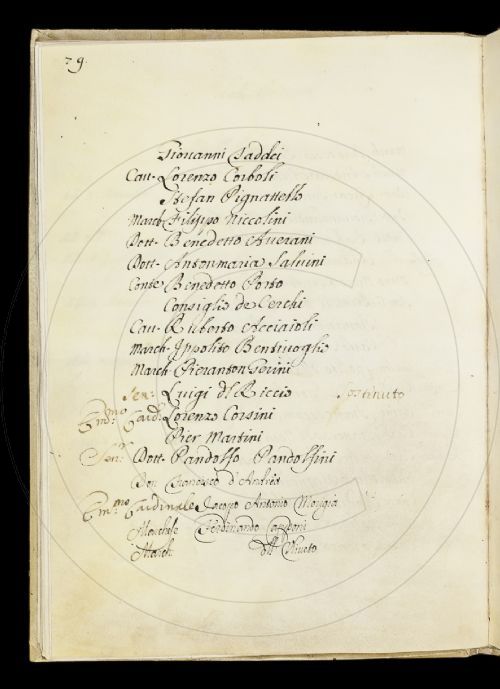 79.
Giovanni Taddei
Cau. Lorenzo Corboli
Stefan Pignattello
March. Filippo Niccolini
Dott. Benedetto Auerani
Dott. Antonmaria Saluini
Conte Benedetto Porto
Consiglio de Cerchi
Cau. Ruberto Acciaioli
March. Ippolito Bentiuoglio
March. Pieranton Gerini
Sen: Luigi del Riccio
Em.mo Card. Lorenzo Corsini
Pier Martini
Sen.r Dott. Pandolfo Pandolfini
Don Francesco d'Andrea
Em.mo Cardinale Jacopo Antonio Morigia
Marchese Ferdinando Capponi
March.